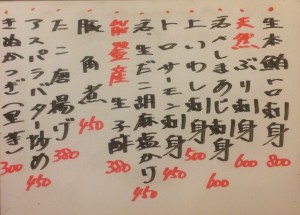 生本鮪トロ刺身 800
天然ぶり刺身 600
活〆しまあじ刺身 600
上いわし刺身 500
トロサーモン刺身 450
活生だこ胡麻塩かり 450
能登産生子酢 380
豚角煮 450
たこ唐揚げ 380
アスパラバター炒め 450
きぬかつぎ(里芋) 300